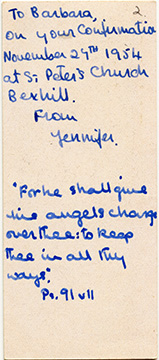 To Barbara, 2.
on your Confirmation
November 29TH 1954
at St Peter's Church
Bexhill.
From
Jennifer.
"For he shall give
his angels charge
over thee: to keep
thee in all thy
ways".
Ps. 91 v 11